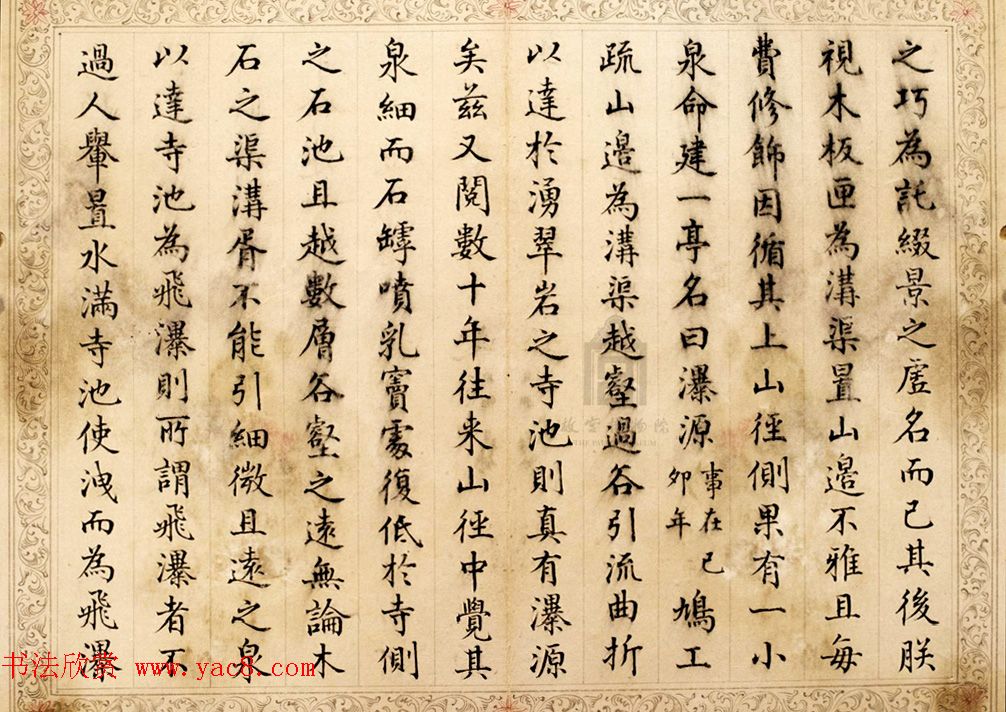 之巧為託綴景之虛名而已其後朕
視木板匣為溝渠置山邉不雅且毎
費修飾因循其上山徑側果有一小
泉命建一亭名曰瀑源事在己卯年鳩工
疏山邉為溝渠越壑過谷引流曲折
以達於湧翠岩之寺池則真有瀑源
矣茲又閱數十年往来山徑中覺其
泉細而石罅噴乳竇處復低於寺側
之石池且越數層谷壑之遠無論木
石之渠溝胥不能引細微且遠之泉
以達寺池為飛瀑則所謂飛瀑者不
過人轝置水滿寺池使洩而為飛瀑
故宮博物院
THE PALACE MUSEUM
书法欣赏 www.yac8.com